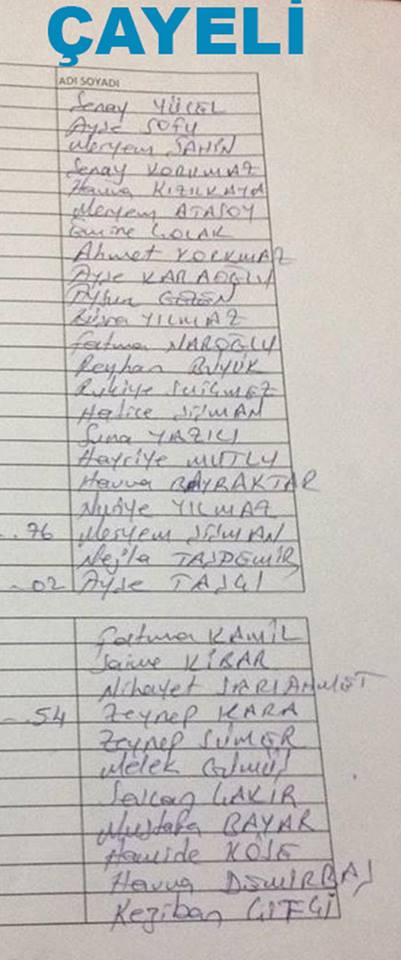 ÇAYELİ
ADI SOYADI
Şenay YÜCEL
Ayşe SOFU
Meryem ŞAHİN
Şenay KORKMAZ
Havva KIZILKAYA
Meryem ATASOY
Emine ÇOLAK
Ahmet KORKMAZ
Ayşe KARAOĞLU
YILMAZ
Fatma NAROĞLU
Reyhan BÜYÜK
Rukiye
Hatice ŞİŞMAN
Suna YAZICI
Hayriye MUTLU
Havva BAYRAKTAR
Nuriye YILMAZ
76 Meryem ŞİŞMAN
Nejla TAŞDEMİR
02 Ayşe TAŞÇI
Fatma KAMİL
Saime KİBAR
Nihayet SARIAHMET
54 Zeynep KARA
Zeynep SÜMER
Melek GÜMÜŞ
Sevcan ÇAKIR
Mustafa BAYAR
Hamide KÖSE
Havva DEMİRBAŞ
Keziban ÇİFÇİ